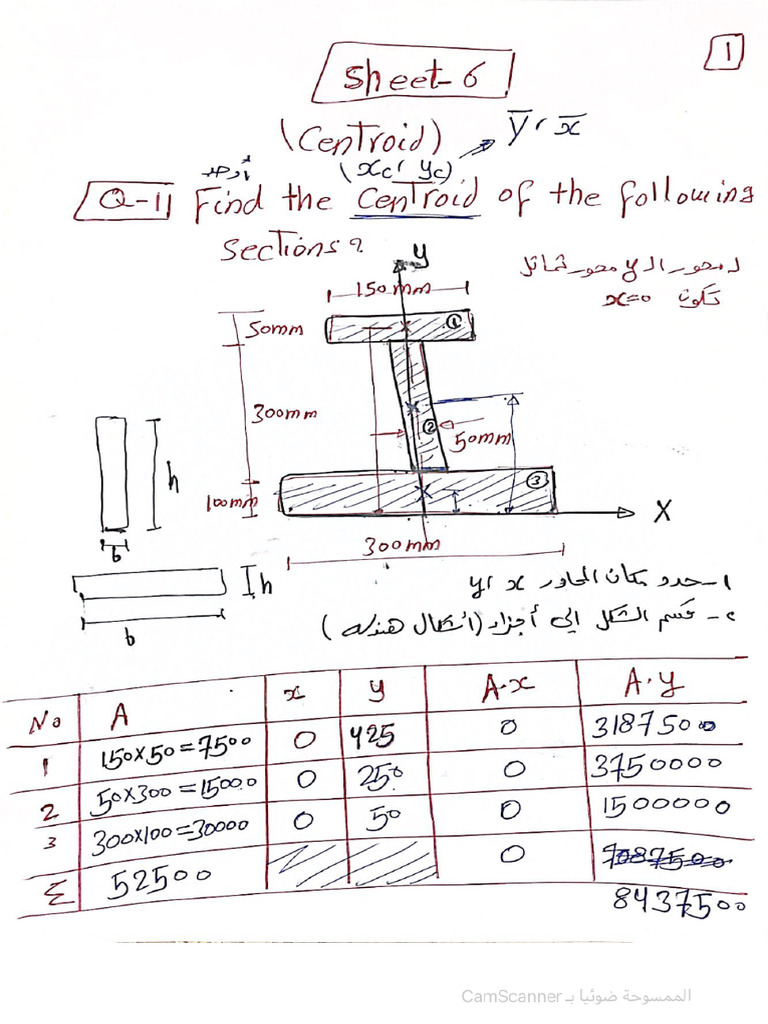 1
Sheet-6
(Centroid) → ȳ, x̄
أوجد (xc, yc)
Q-1 Find the Centroid of the following
Sections?
y
لمحور الـ y محور تماثل
تكون x=0
150mm
50mm
①
300mm
②
50mm
100mm
③
X
300mm
h
b
h
b
1- حدد مكان المحاور x, y
2- قسم الشكل الي أجزاء (اشكال هندسية)
No A x y A.x A.y
1 150×50=7500 0 425 0 3187500
2 50×300=15000 0 250 0 3750000
3 300×100=30000 0 50 0 1500000
Σ 52500 0 7087500
8437500
الممسوحة ضوئيا بـ CamScanner